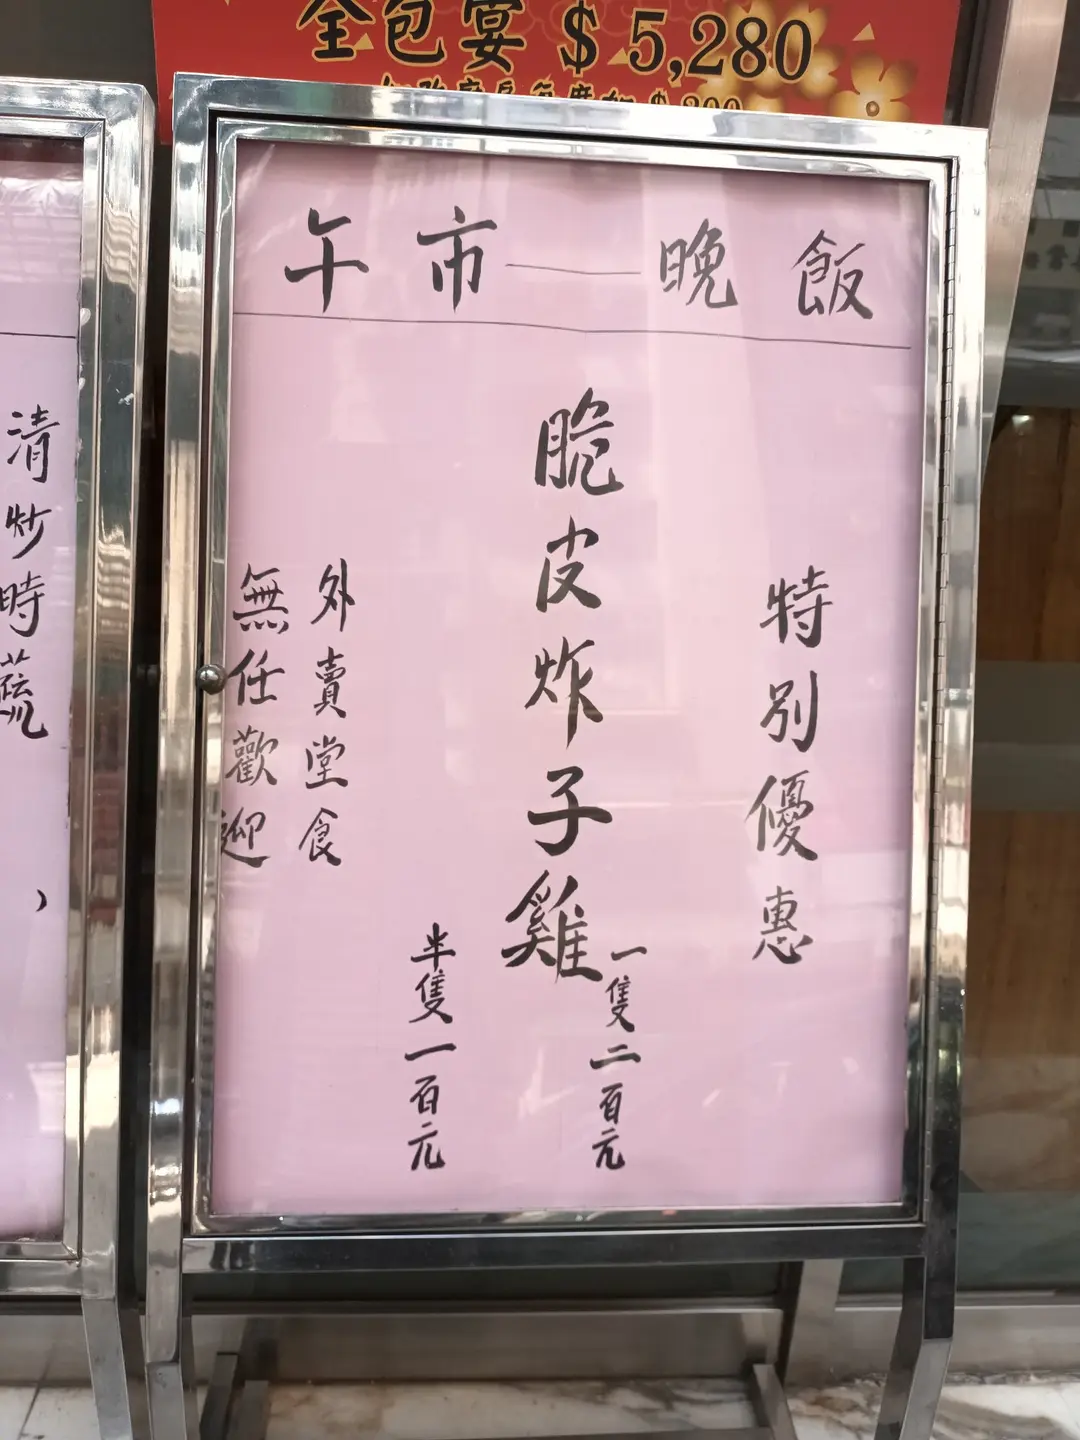 全包宴 $5,280
午市——晚飯
特別優惠
脆皮炸子雞
一隻二百元
半隻一百元
外賣堂食
無任歡迎
清炒時蔬